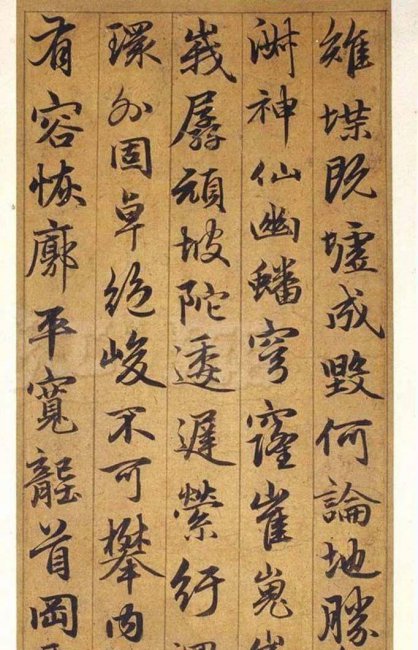 雉堞既墟成毁何論地勝
神仙幽蟠穹窿崔嵬
峩孱顔坡陀逶遲縈紆
環外固卓絶峻不可攀内
有容恢廓平寬龍首岡